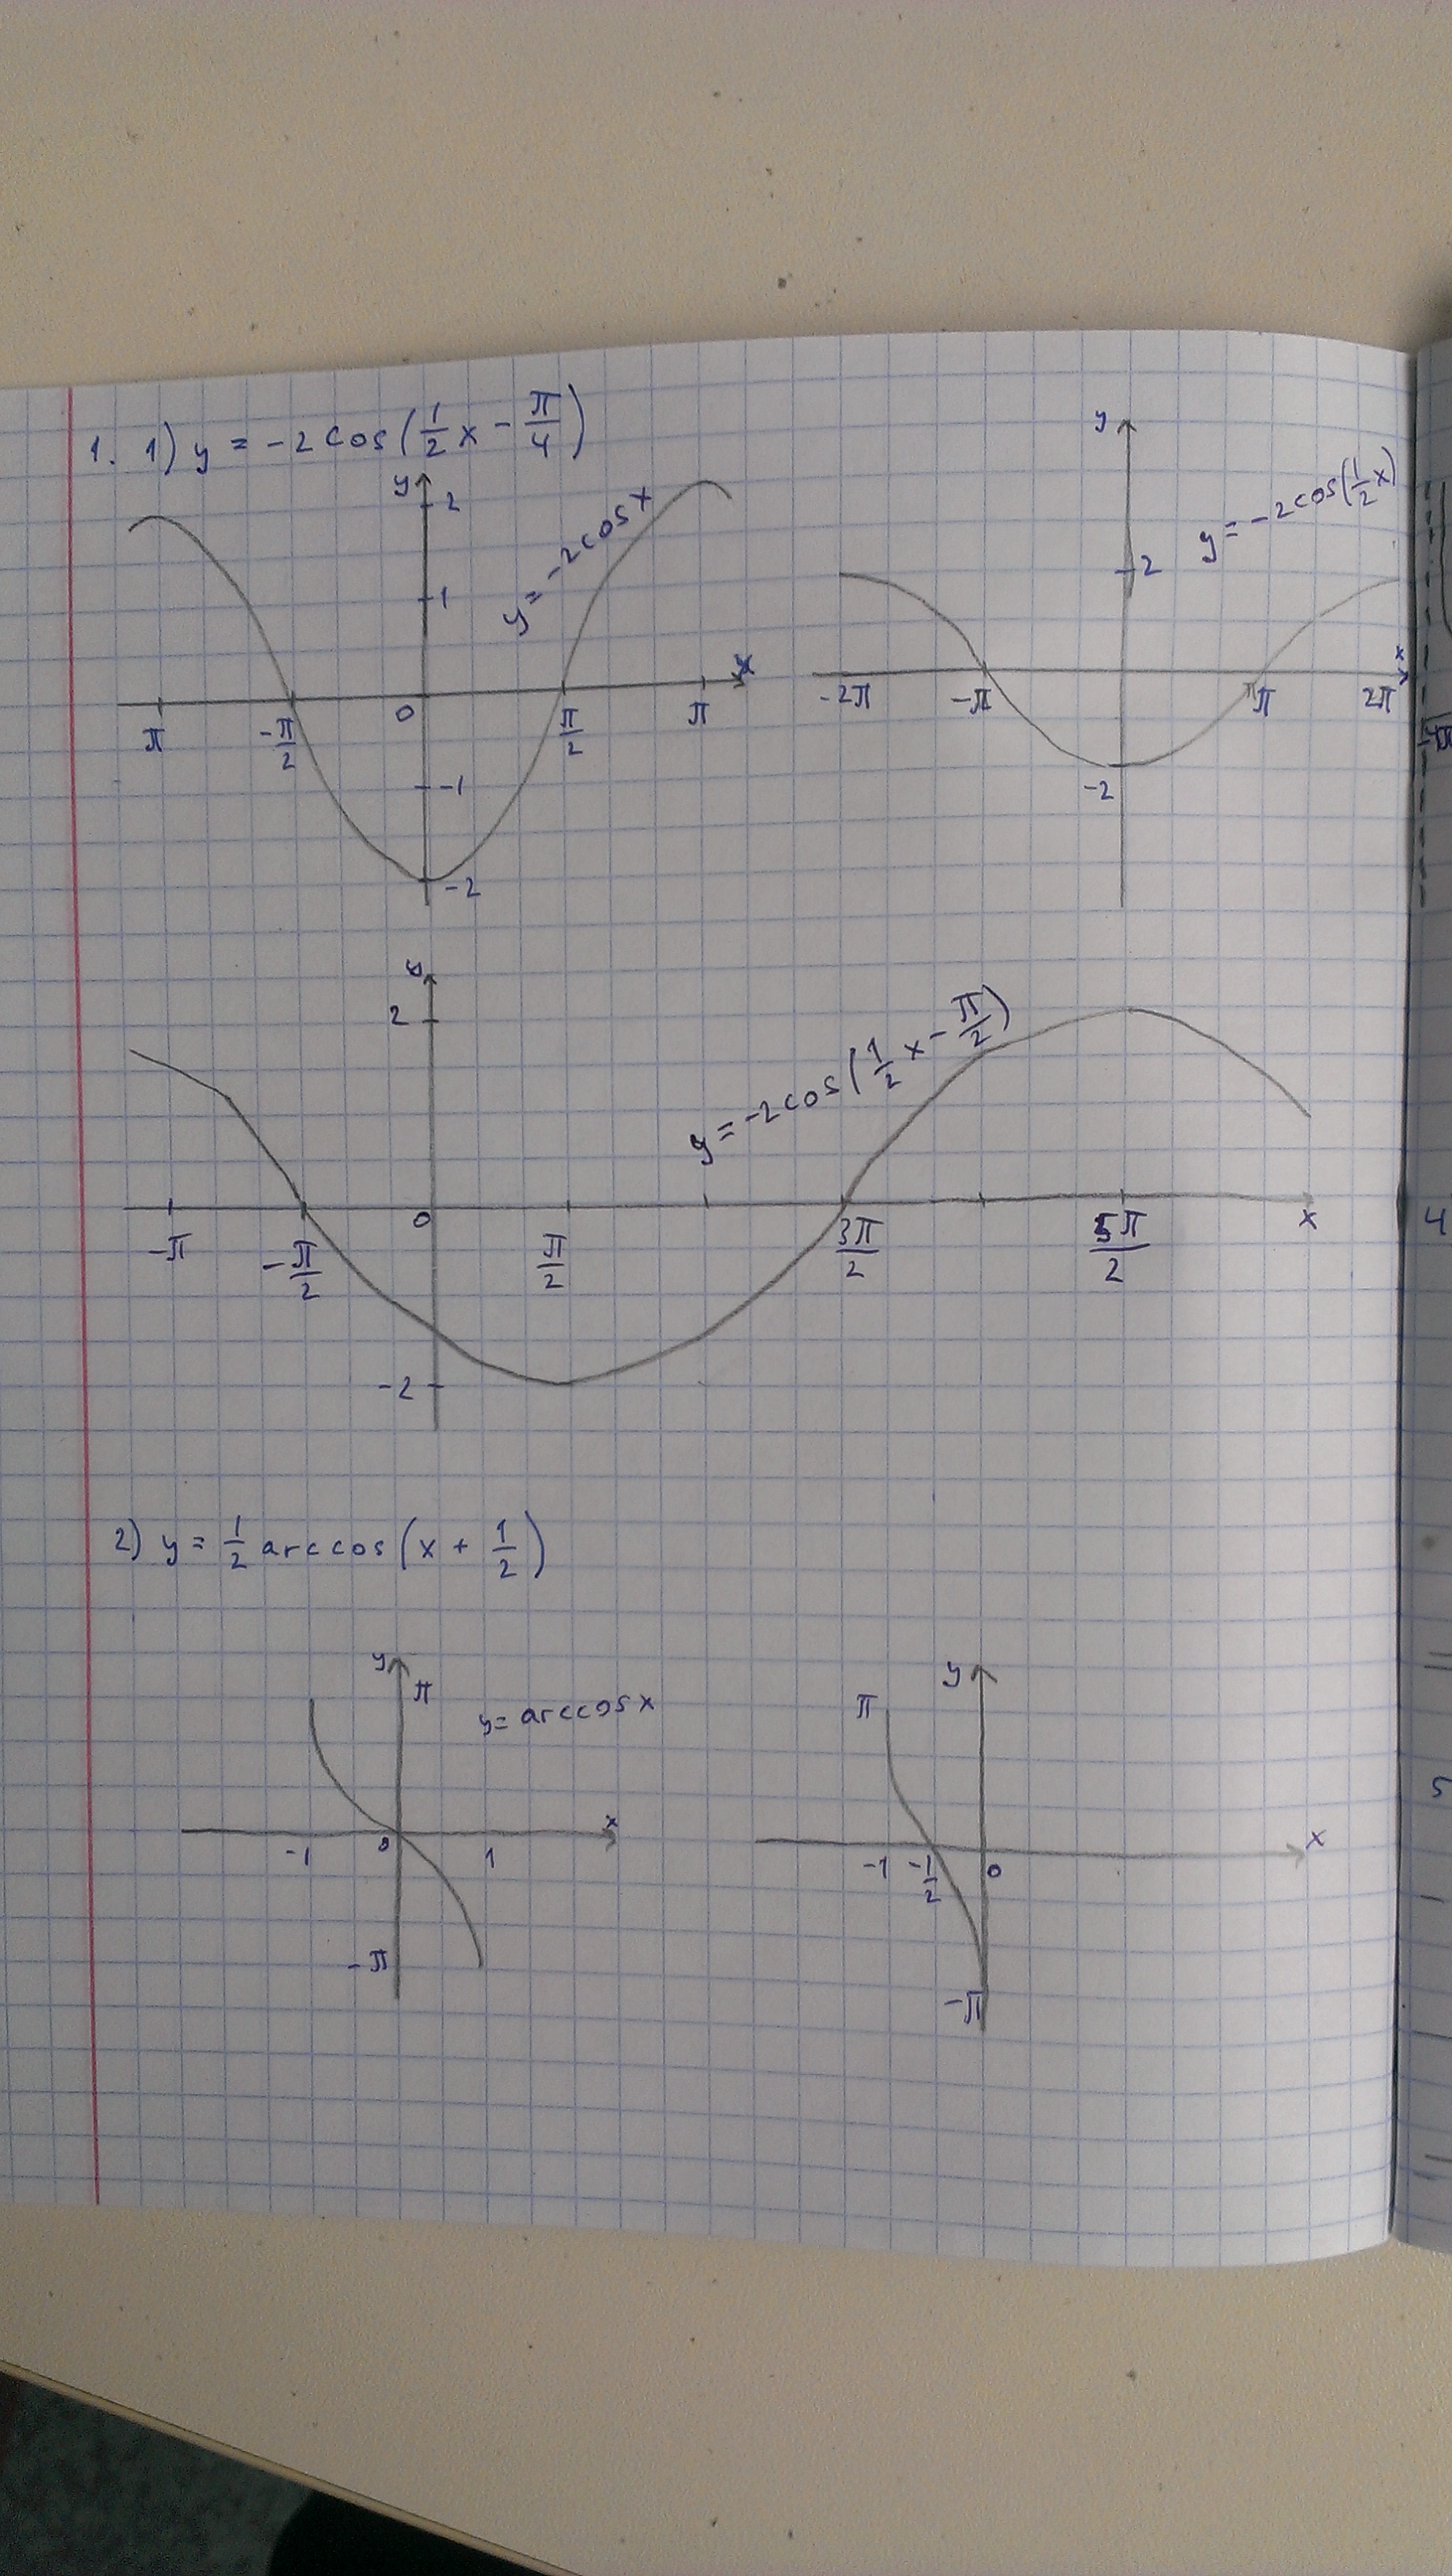 1. 1) y = -2 cos(1/2 x - π/4)
y
2
1
0
-1
-2
π
-π/2
π/2
π
x
y = -2 cos x
y
2
y = -2 cos(1/2 x)
-2π
-π
π
2π
x
-2
y
2
y = -2 cos(1/2 x - π/2)
-π
-π/2
0
π/2
3π/2
5π/2
x
-2
2) y = 1/2 arccos(x + 1/2)
y
π
y = arccos x
-1
0
1
x
-π
y
π
-1
-1/2
0
x
-π
4
5